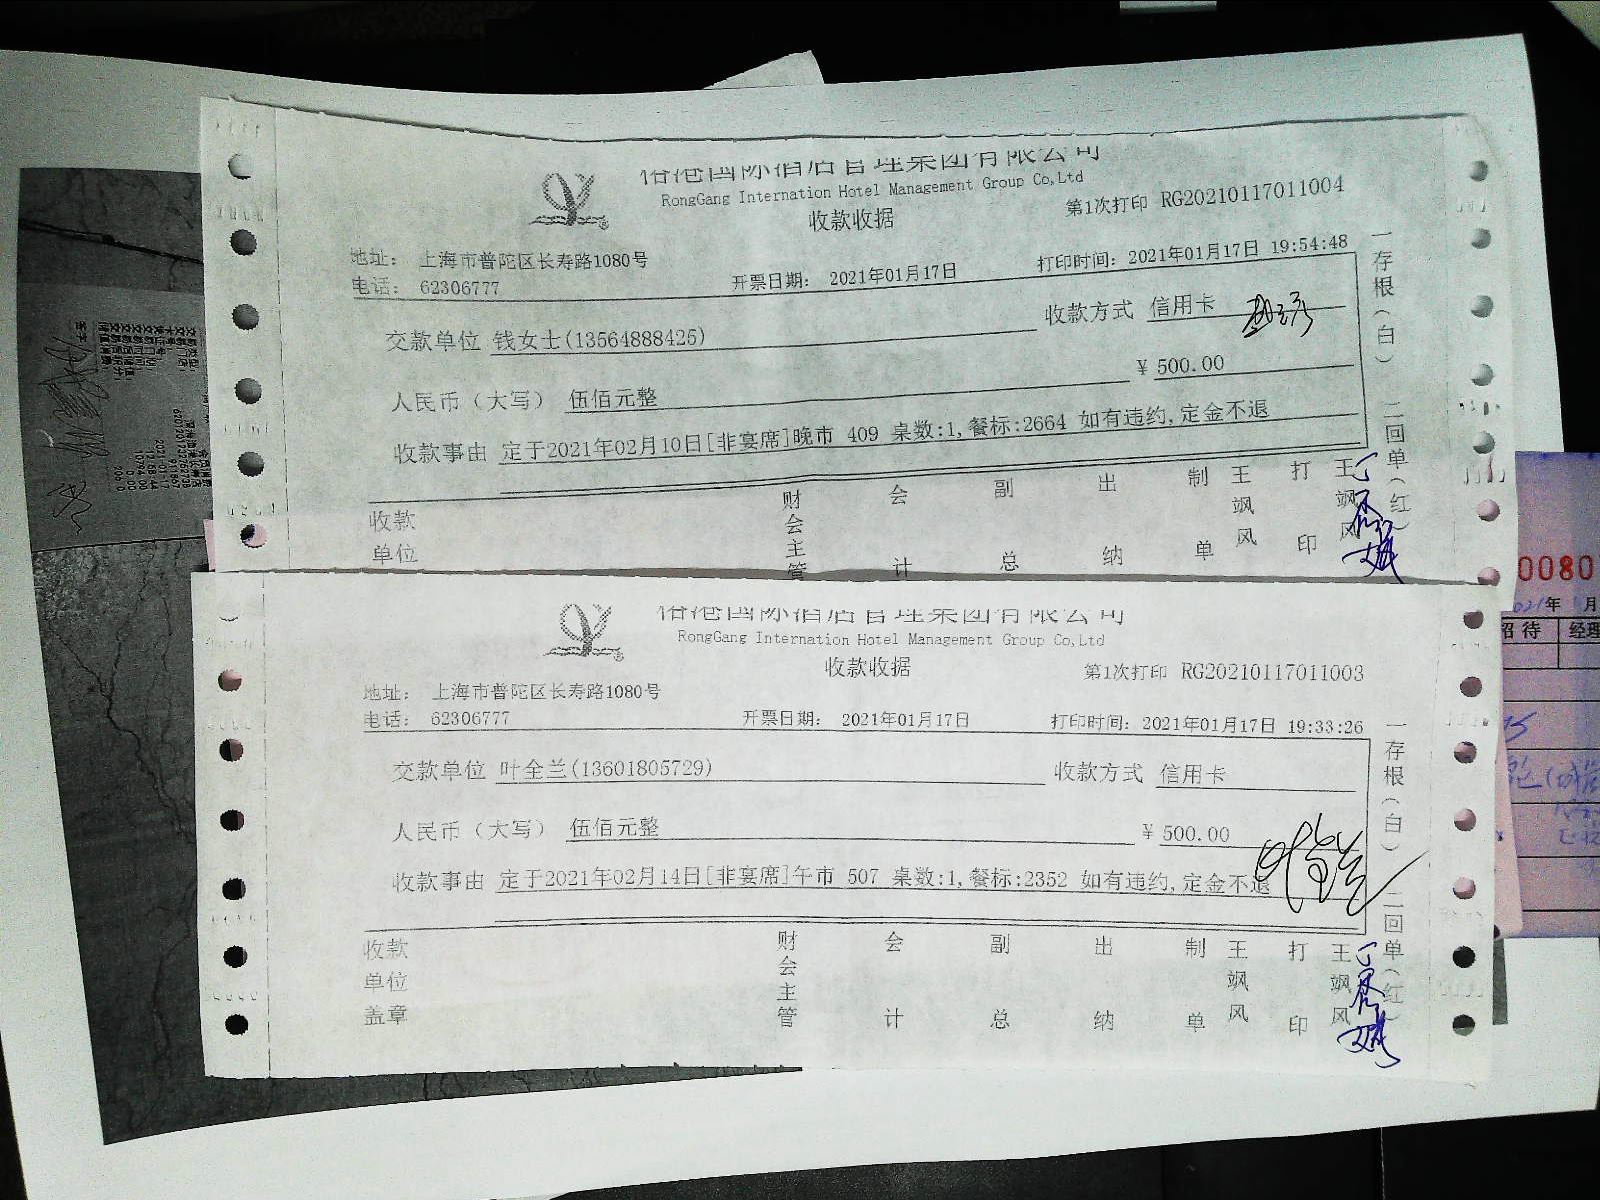 国际酒店管理集团有限公司
RongGang Internation Hotel Management Group Co,Ltd
收款收据
第1次打印 RG20210117011004
地址： 上海市普陀区长寿路1080号
电话： 62306777
开票日期： 2021年01月17日
打印时间：2021年01月17日 19:54:48
交款单位 钱女士(13564888425)
收款方式 信用卡
人民币（大写） 伍佰元整
¥ 500.00
收款事由 定于2021年02月10日[非宴席]晚市 409 桌数:1,餐标:2664 如有违约,定金不退
一存根（白） 二回单（红）
收款单位
财会主管 会计 副总 出纳 制单 王飒风 打印 王飒风
国际酒店管理集团有限公司
RongGang Internation Hotel Management Group Co,Ltd
收款收据
第1次打印 RG20210117011003
地址： 上海市普陀区长寿路1080号
电话： 62306777
开票日期： 2021年01月17日
打印时间：2021年01月17日 19:33:26
交款单位 叶全兰(13601805729)
收款方式 信用卡
人民币（大写） 伍佰元整
¥ 500.00
收款事由 定于2021年02月14日[非宴席]午市 507 桌数:1,餐标:2352 如有违约,定金不退
叶全兰
一存根（白） 二回单（红）
收款单位盖章
财会主管 会计 副总 出纳 制单 王飒风 打印 王飒风
0080
2021年 月
招待 经理